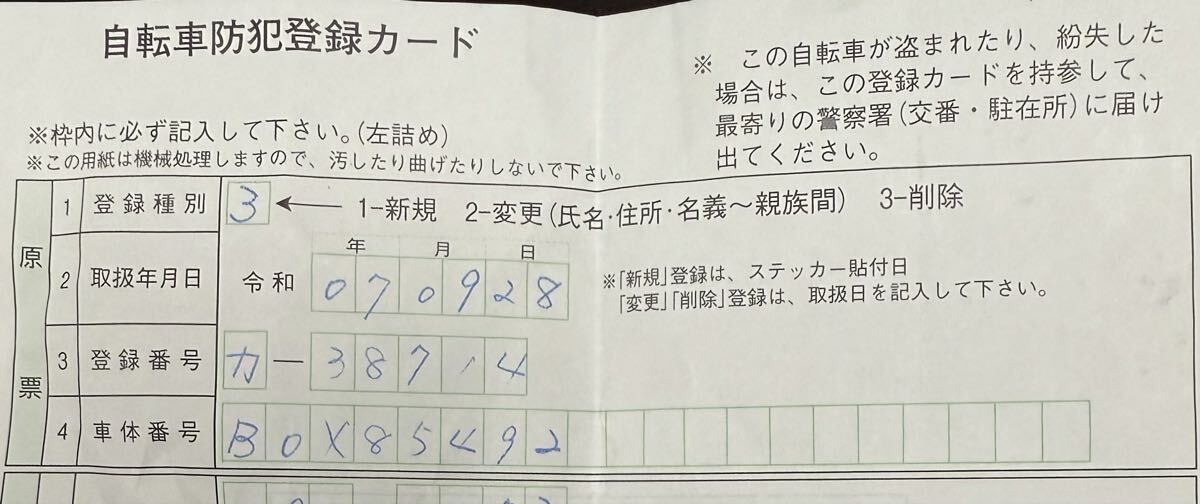 自転車防犯登録カード
※ この自転車が盗まれたり、紛失した
場合は、この登録カードを持参して、
最寄りの警察署(交番・駐在所)に届け
出てください。
※枠内に必ず記入して下さい。(左詰め)
※この用紙は機械処理しますので、汚したり曲げたりしないで下さい。
原票
1 登録種別 3 ← 1-新規 2-変更(氏名・住所・名義～親族間) 3-削除
年 月 日
2 取扱年月日 令和 070928
※「新規」登録は、ステッカー貼付日
「変更」「削除」登録は、取扱日を記入して下さい。
3 登録番号 カ-38714
4 車体番号 B0X85492